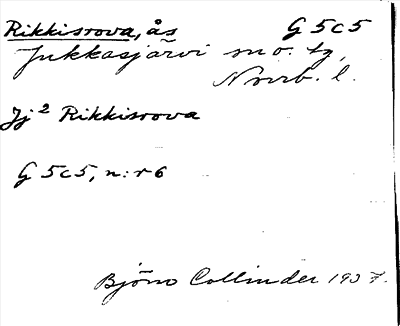 Rikkisrova, ås G 5c5
Jukkasjärvi sn o. tg,
Norrb. l.
Jj² Rikkisrova
G 5c5, n:r 6
Björn Collinder 1937.